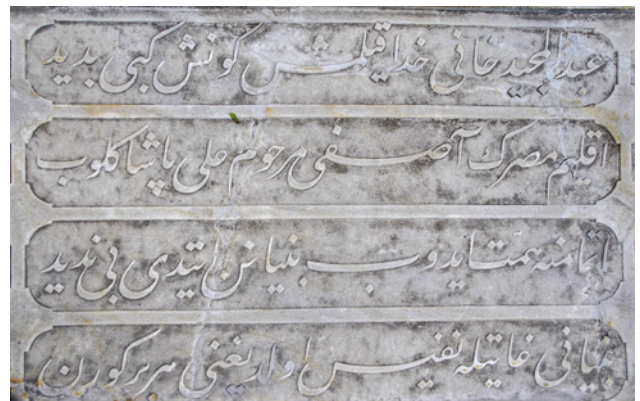 عبدالمجید خانی خدا قیلمش کونش کبی بدید
اقلیم مصرك آصفی مرحوم علی پاشا کلوب
اتمامنه همّت ایدوب بنیانن ایتدی بی ندید
بنیانی غایتله نفیس اولدیغنی هر بر کورن